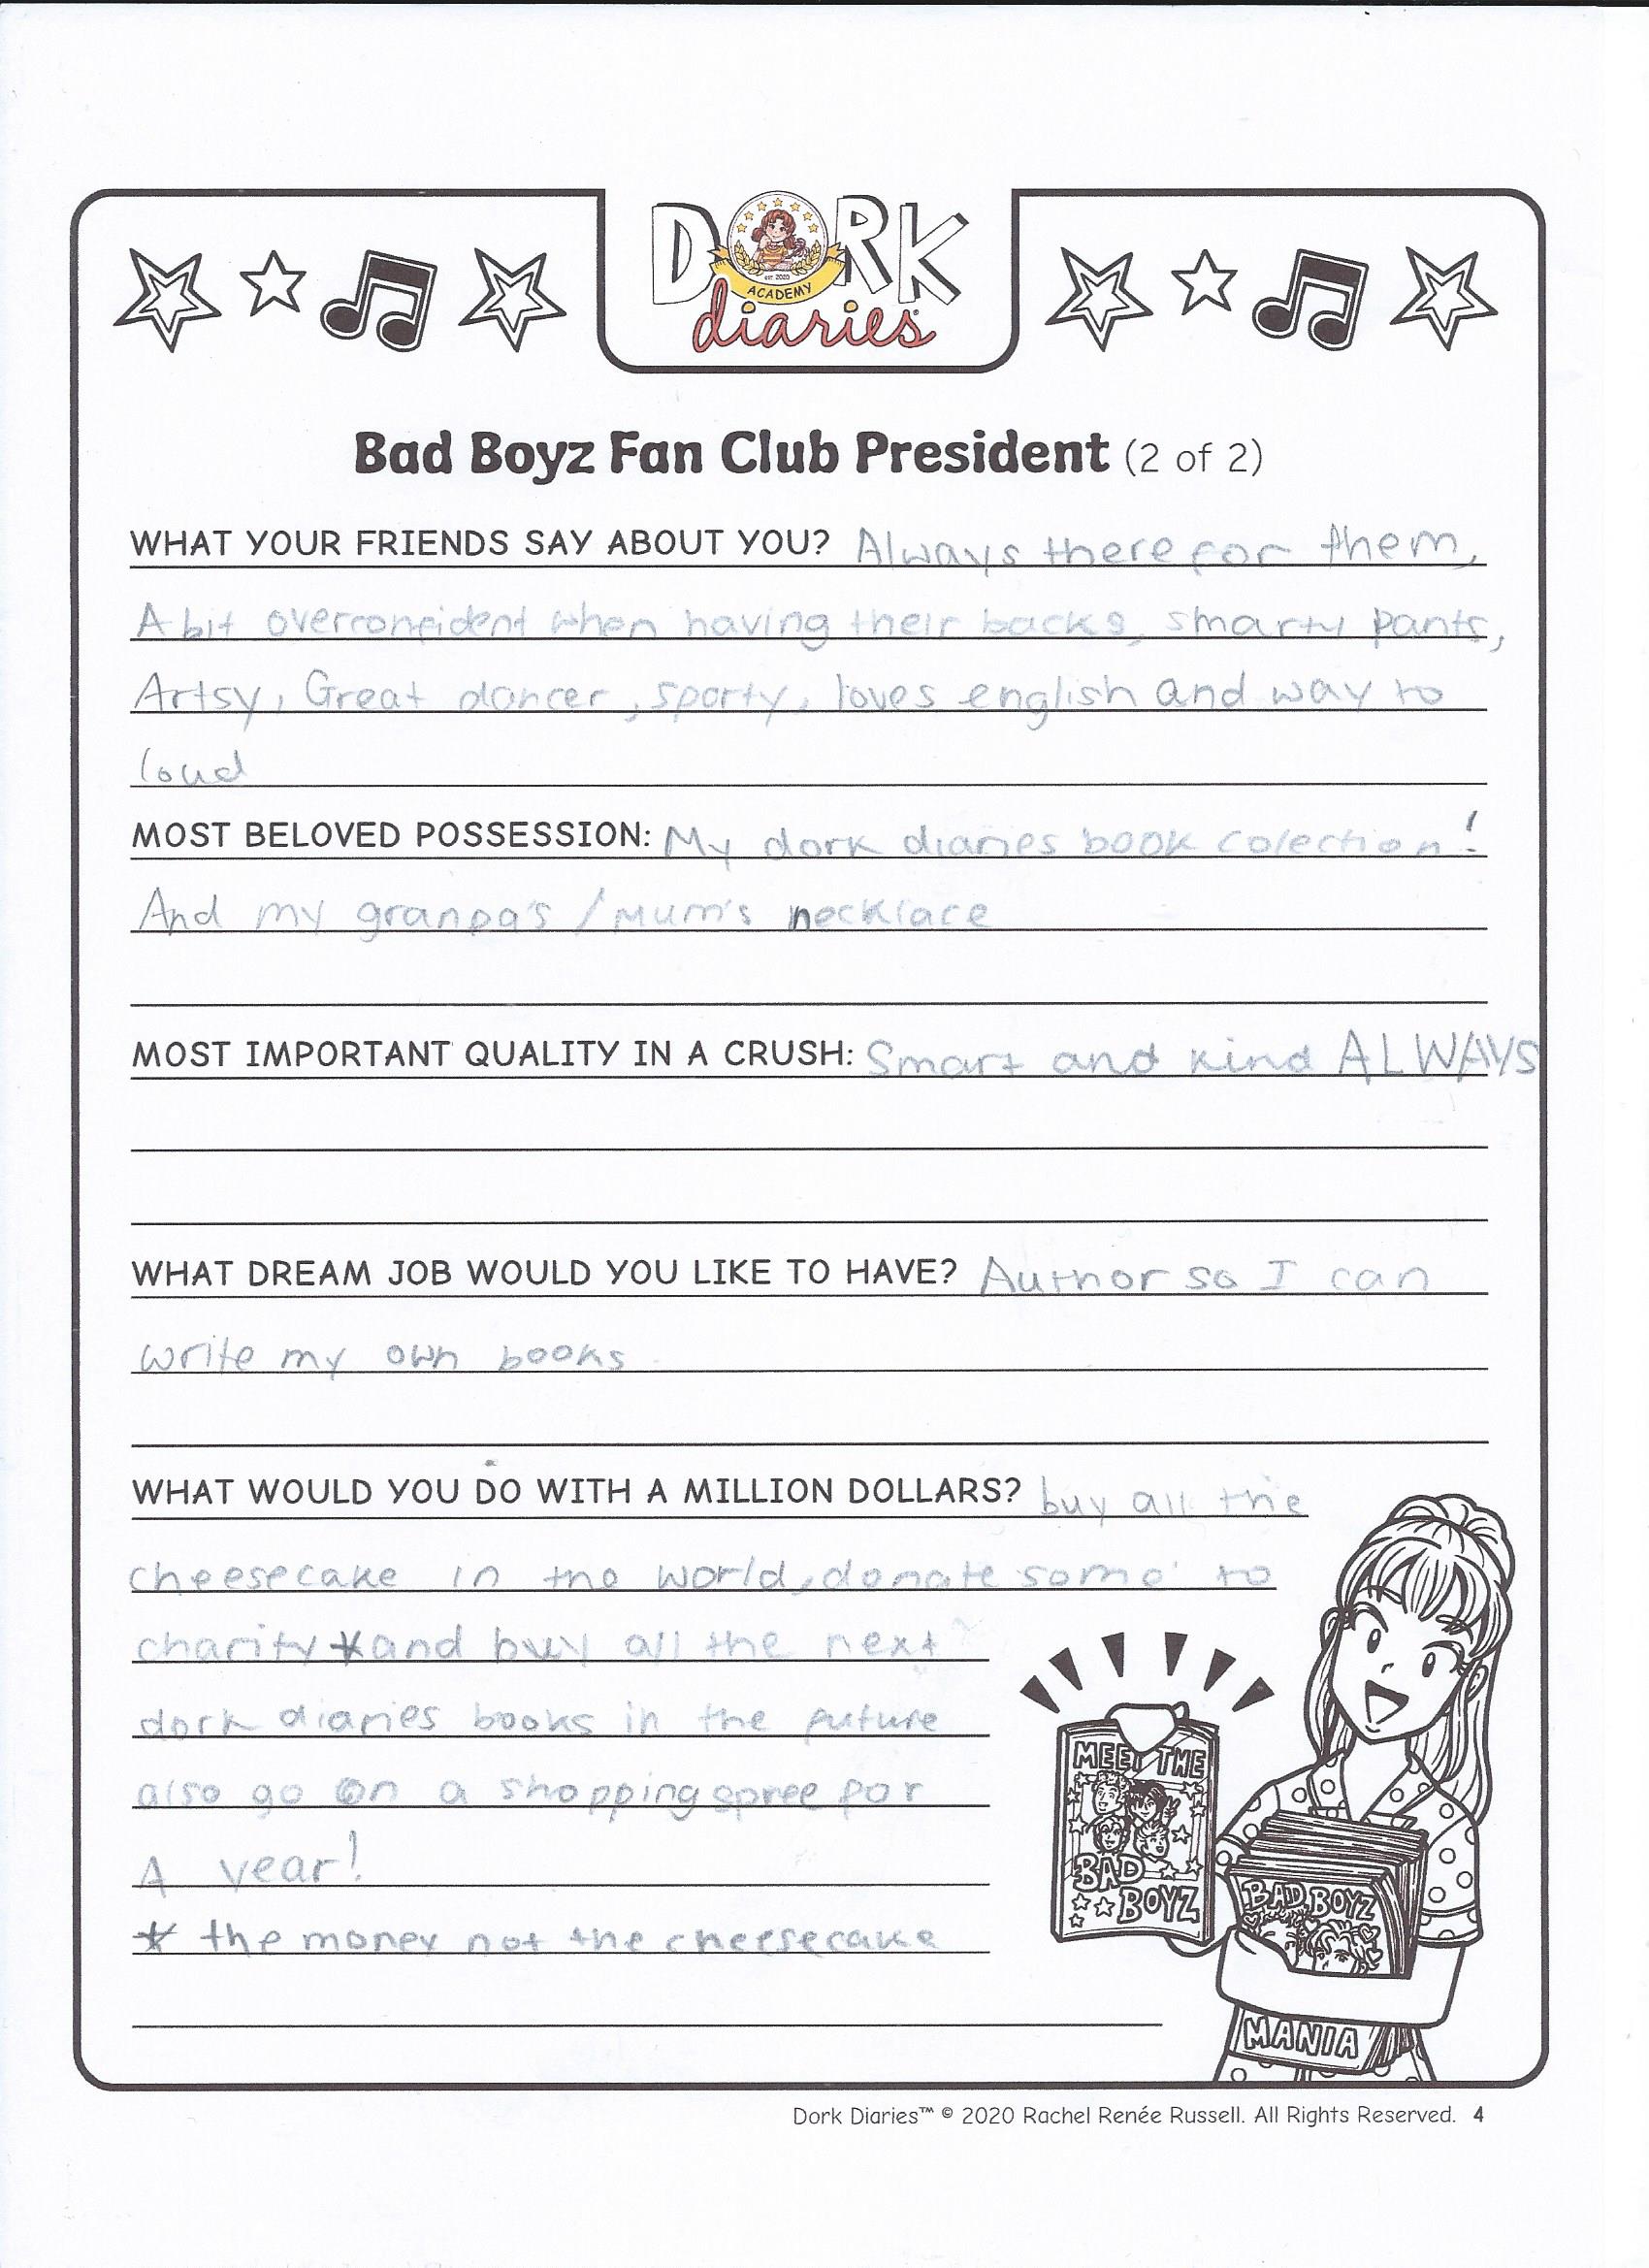 DORK
EST 2020
ACADEMY
diaries
Bad Boyz Fan Club President (2 of 2)
WHAT YOUR FRIENDS SAY ABOUT YOU? Always there for them,
A bit overconfident when having their backs, smarty pants,
Artsy, Great dancer, sporty, loves english and way to
loud
MOST BELOVED POSSESSION: My dork diaries book colection!
And my granpa's / Mum's necklace
MOST IMPORTANT QUALITY IN A CRUSH: Smart and kind ALWAYS
WHAT DREAM JOB WOULD YOU LIKE TO HAVE? Author so I can
write my own books
WHAT WOULD YOU DO WITH A MILLION DOLLARS? buy all the
cheesecake in the world, donate some to
charity * and buy all the next
dork diaries books in the future
also go on a shopping spree for
A year!
* the money not the cheesecake
MEET THE
BAD
BOYZ
BAD BOYZ
MANIA
Dork Diaries™ © 2020 Rachel Renée Russell. All Rights Reserved. 4